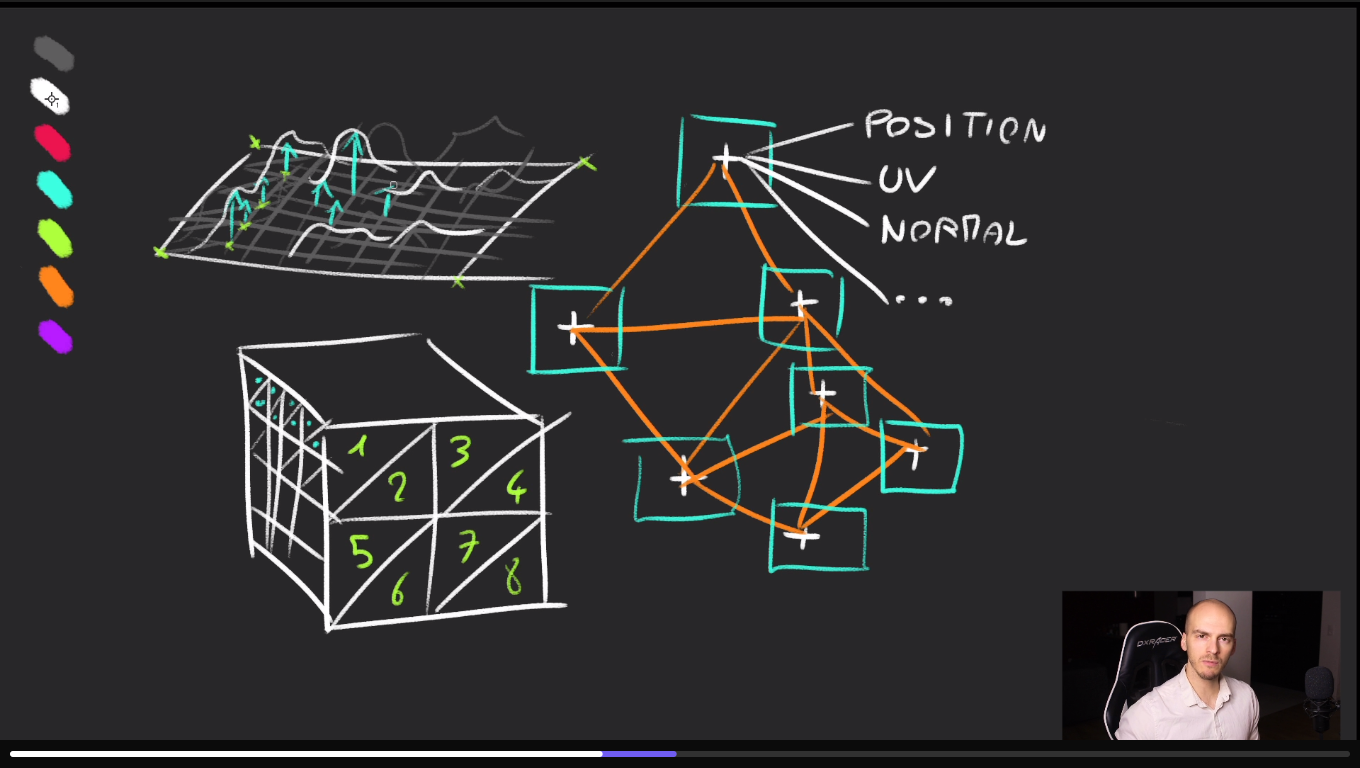 POSITION
UV
NORMAL
...
1
3
2
4
5
7
6
8
DXRACER